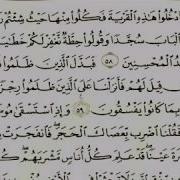 ٱدۡخُلُواْ هَٰذِهِ ٱلۡقَرۡيَةَ فَكُلُواْ مِنۡهَا حَيۡثُ شِئۡتُمۡ
ٱلۡبَابَ سُجَّدٗا وَقُولُواْ حِطَّةٞ نَّغۡفِرۡ لَكُمۡ خَطَٰيَٰ
ٱلۡمُحۡسِنِينَ ٥٨ فَبَدَّلَ ٱلَّذِينَ ظَلَمُواْ
قِيلَ لَهُمۡ فَأَنزَلۡنَا عَلَى ٱلَّذِينَ ظَلَمُواْ رِجۡزٗا
بِمَا كَانُواْ يَفۡسُقُونَ ٥٩ وَإِذِ ٱسۡتَسۡقَىٰ مُو
فَقُلۡنَا ٱضۡرِب بِّعَصَاكَ ٱلۡحَجَرَۖ فَٱنفَجَرَتۡ
عَيۡنٗاۖ قَدۡ عَلِمَ كُلُّ أُنَاسٖ مَّشۡرَبَهُمۡۖ كُ